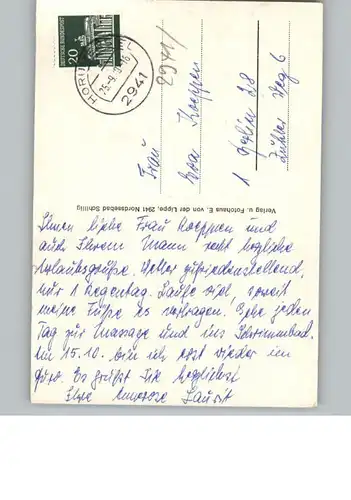 DEUTSCHE BUNDESPOST
20
2941
25.-9.
2941
Frau
Eva Koeppen
1 Berlin 28
Zühlsd. Weg 6
Verlag u. Fotohaus E. von der Lippe, 2941 Nordseebad Schillig
Ihnen liebe Frau Koeppen und
auch Ihrem Mann recht herzliche
Urlaubsgrüße. Wetter zufriedenstellend,
nur 1 Regentag. Laufe viel, soweit
meine Füße es vertragen. Gehe jeden
Tag zur Massage und ins Schwimmbad.
Am 15.10. bin ich erst wieder im
Büro. Es grüßt Sie herzlichst
Ihre